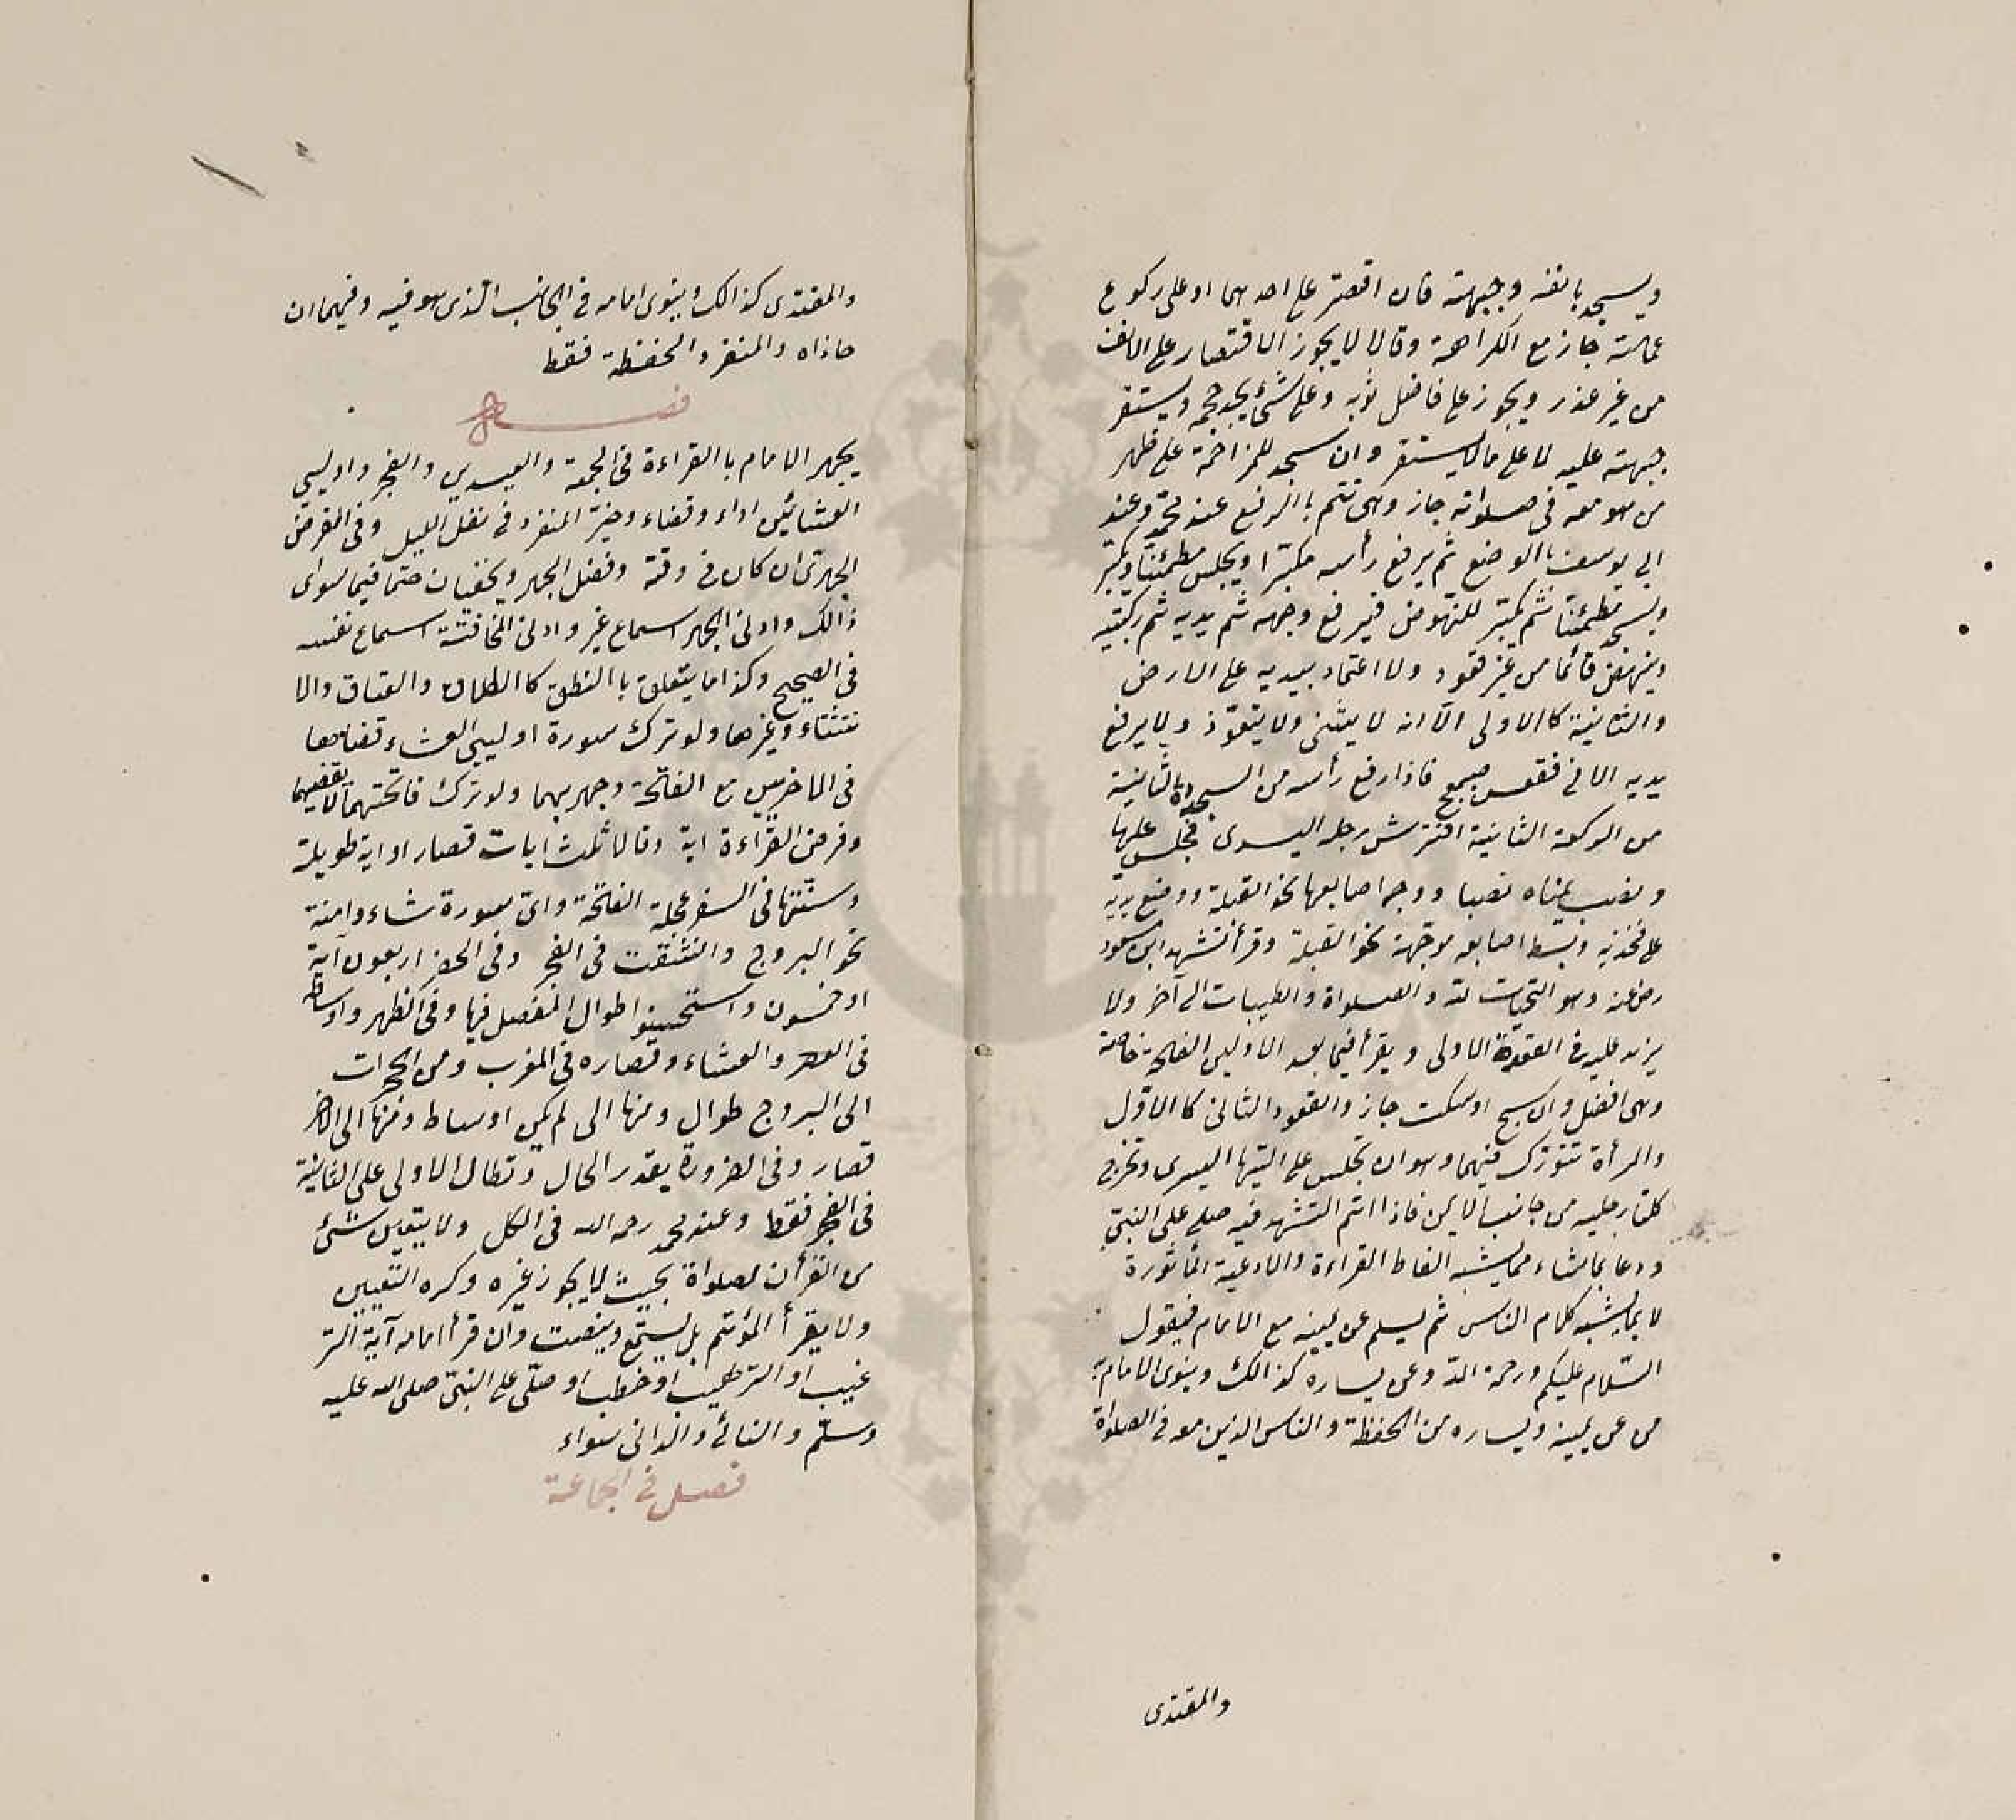 ويسجد بانفه وجبهته فان اقتصر على احدهما او على ركوع
عمامته جاز مع الكراهة وقالا لا يجوز الاقتصار على الانف
من غير عذر ويجوز على فاضل ثوبه وعلى شئ يجد حجمه ويستقر
جبهته عليه لا على ما لا يستقر وان سجد للمزاحمة على ظهر
من هو معه فى صلواته جاز وهى تتم با الرفع عند محمد وعند
ابى يوسف با الوضع ثم يرفع رأسه مكبّرا ويجلس مطمئنا ويكبّر
ويسجد مطمئنا ثم يكبّر للنهوض فيرفع وجهه ثم يديه ثم ركبتيه
وينهض قائما من غير قعود ولا اعتماد بيديه على الارض
والثانية كا الاولى الّا انه لا يثنى ولا يتعوّذ ولا يرفع
يديه الا فى فقعس صمعج فاذا رفع رأسه من السجدة الثانية
من الركعة الثانية افترش رجله اليسرى فجلس عليها
ونصب يمناه نصبا ووجه اصابعها نحو القبلة ووضع يديه
على فخذيه وبسط اصابعه موجّهة نحو القبلة وقرأ تشهد ابن مسعود
رضى عنه وهو التحيات لله والصلواة والطيبات الى آخر ولا
يزيد عليه فى القعدة الاولى ويقرأ فيما بعد الاوليين الفاتحة خاصة
وهى افضل وان سبح او سكت جاز والقعود الثانى كا الاوّل
والمرأة تتورّك فيهما وهو ان تجلس على اليتها اليسرى وتخرج
كلتا رجليه من جانب الايمن فاذا اتم التشهد فيه صلى على النبىّ
ودعا بما شاء مما يشبه الفاظ القراءة والادعية المأثورة
لا بما يشبه كلام الناس ثم يسلم عن يمينه مع الامام فيقول
السّلام عليكم ورحمة اللّه وعن يساره كذالك وينوى الامام به
من عن يمينه ويساره من الحفظة والناس الذين معه فى الصلواة
والمقتدى
والمقتدى كذالك وينوى امامه فى الجانب الّذى هو فيه وفيهما ان
حاذاه والمنفرد الحفظة فقط
فصل
يجهر الامام با القراءة فى الجمعة والعيدين والفجر واوليى
العشائين اداء وقضاء وخيّر المنفرد فى نفل الليل وفى الفرض
الجهرى ان كان فى وقته وفضل الجهر ويخفيان حتما فيما سواى
ذالك وادنى الجهر اسماع غير وادنى المخافتة اسماع نفسه
فى الصحيح وكذا ما يتعلق با النطق كا الطلاق والعتاق والا
ستثناء وغيرها ولو ترك سورة اوليى العشاء قضاهما
فى الاخريين مع الفاتحة وجهر بهما ولو ترك فاتحتهما لا يقضيهما
وفرض القراءة اية وقالا ثلث ايات قصار او اية طويلة
وسنّتها فى السفر عجلة الفاتحة واىّ سورة شاء وامنة
نحو البروج وانشقت فى الفجر وفى الحضر اربعون آية
او خمسون واستحسنوا طوال المفصل فيها وفى الظهر واوساطه
فى العصر والعشاء وقصاره فى المغرب ومن الحجرات
الى البروج طوال ومنها الى لم يكن اوساط ومنها الى الاخر
قصار وفى الضرورة بقدر الحال وتطال الاولى على الثانية
فى الفجر فقط وعند محمد رحمه الله فى الكل ولا يتعين شئ
من القرأن لصلواة بحيث لا يجوز غيره وكره التعيين
ولا يقرأ المؤتم بل يستمع وينصت وان قرأ امامه آية التر
غيب او الترهيب او خطب او صلّى على النبىّ صلى الله عليه
وسلّم والنائى والدانى سواء
فصل فى الجماعة